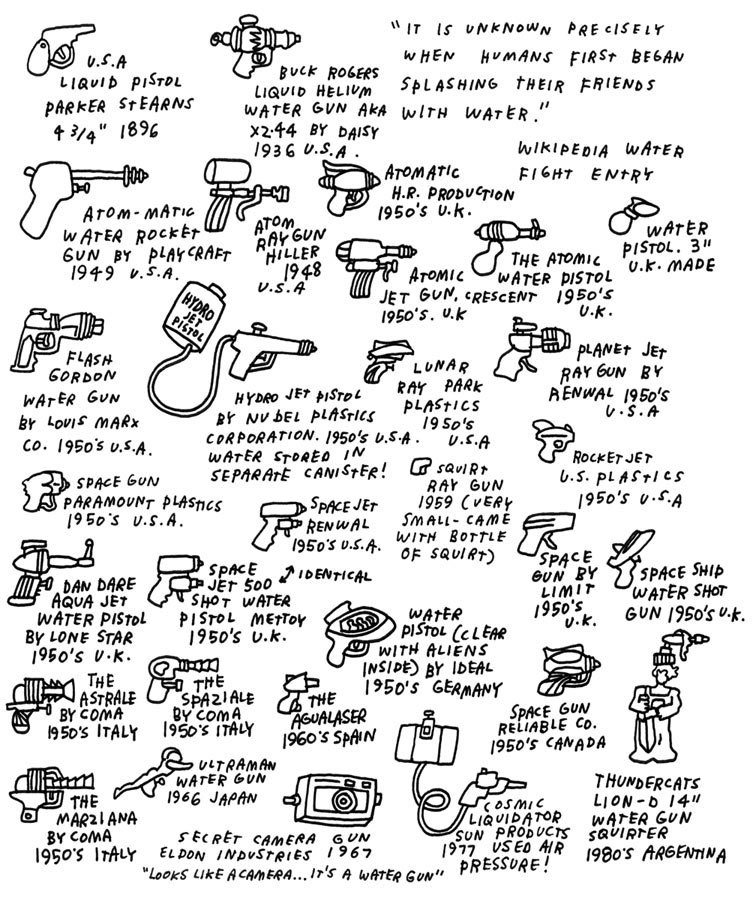 U.S.A
LIQUID PISTOL
PARKER STEARNS
4 3/4" 1896
BUCK ROGERS
LIQUID HELIUM
WATER GUN AKA
XZ-44 BY DAISY
1936 U.S.A.
"IT IS UNKNOWN PRECISELY
WHEN HUMANS FIRST BEGAN
SPLASHING THEIR FRIENDS
WITH WATER."
WIKIPEDIA WATER
FIGHT ENTRY
ATOM-MATIC
WATER ROCKET
GUN BY PLAYCRAFT
1949 U.S.A.
ATOM
RAY GUN
HILLER
1948
U.S.A
ATOMATIC
H.R. PRODUCTION
1950'S U.K.
ATOMIC
JET GUN, CRESCENT
1950'S. U.K
THE ATOMIC
WATER PISTOL
1950'S
U.K.
WATER
PISTOL. 3"
U.K. MADE
FLASH
GORDON
WATER GUN
BY LOUIS MARX
CO. 1950'S U.S.A.
HYDRO
JET
PISTOL
HYDRO JET PISTOL
BY NU DEL PLASTICS
CORPORATION. 1950'S U.S.A.
WATER STORED IN
SEPARATE CANISTER!
LUNAR
RAY PARK
PLASTICS
1950'S
U.S.A
PLANET JET
RAY GUN BY
RENWAL 1950'S
U.S.A
ROCKET JET
U.S. PLASTICS
1950'S U.S.A
SPACE GUN
PARAMOUNT PLASTICS
1950'S U.S.A.
SPACE JET
RENWAL
1950'S U.S.A.
SQUIRT
RAY GUN
1959 (VERY
SMALL- CAME
WITH BOTTLE
OF SQUIRT)
SPACE
GUN BY
LIMIT
1950'S
U.K.
SPACE SHIP
WATER SHOT
GUN 1950'S U.K.
DAN DARE
AQUA JET
WATER PISTOL
BY LONE STAR
1950'S U.K.
SPACE
JET 500
SHOT WATER
PISTOL METTOY
1950'S U.K.
IDENTICAL
WATER
PISTOL (CLEAR
WITH ALIENS
INSIDE) BY IDEAL
1950'S GERMANY
THE
ASTRALE
BY COMA
1950'S ITALY
THE
SPAZIALE
BY COMA
1950'S ITALY
THE
AGUALASER
1960'S SPAIN
SPACE GUN
RELIABLE CO.
1950'S CANADA
THE
MARZIANA
BY COMA
1950'S ITALY
ULTRAMAN
WATER GUN
1966 JAPAN
SECRET CAMERA GUN
ELDON INDUSTRIES 1967
"LOOKS LIKE A CAMERA... IT'S A WATER GUN"
COSMIC
LIQUIDATOR
SUN PRODUCTS
1977 USED AIR
PRESSURE!
THUNDERCATS
LION-O 14"
WATER GUN
SQUIRTER
1980'S ARGENTINA